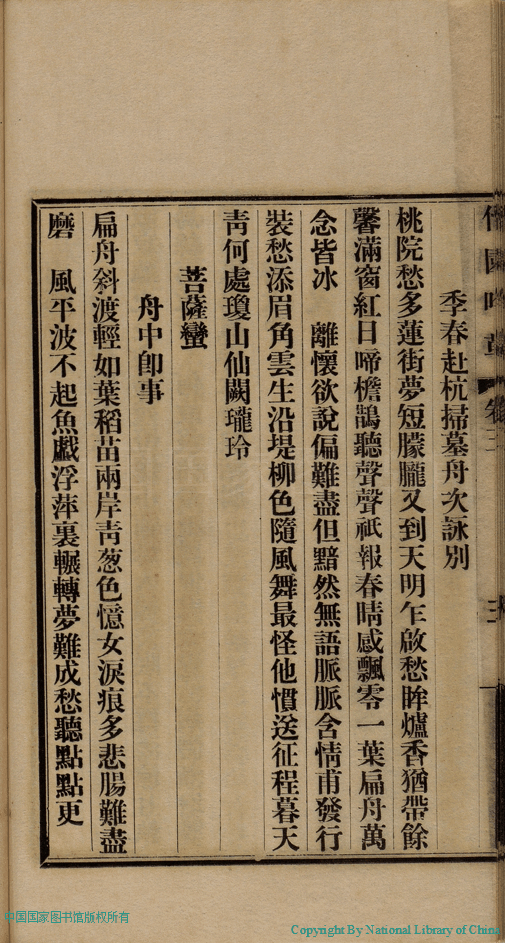 季春赴杭掃墓舟次詠別
桃院愁多蓮街夢短朦朧又到天明乍啟愁眸爐香猶帶餘
馨滿窗紅日啼檐鵲聽聲聲祇報春晴感飄零一葉扁舟萬
念皆冰　離懷欲說偏難盡但黯然無語脈脈含情甫發行
裝愁添眉角雲生沿堤柳色隨風舞最怪他慣送征程暮天
靑何處瓊山仙闕瓏玲
菩薩蠻
舟中卽事
扁舟斜渡輕如葉稻苗兩岸靑葱色憶女淚痕多悲腸難盡
磨　風平波不起魚戲浮萍裏輾轉夢難成愁聽點點更
中国国家图书馆版权所有
Copyright By National Library of China